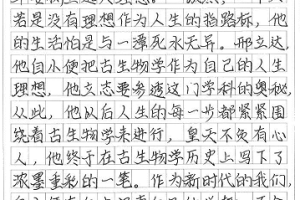 若是没有理想作为人生的指路标，他
的生活怕是与一潭死水无异。邢立达，
他自小便把古生物学作为自己的人生
理想，他立志要参透这门学科的奥秘
从此，他以后人生的每一步都紧紧围
绕着古生物学来进行，皇天不负有心
人，他终于在古生物学历史上写下了
浓墨重彩的一笔。作为新时代的我们，